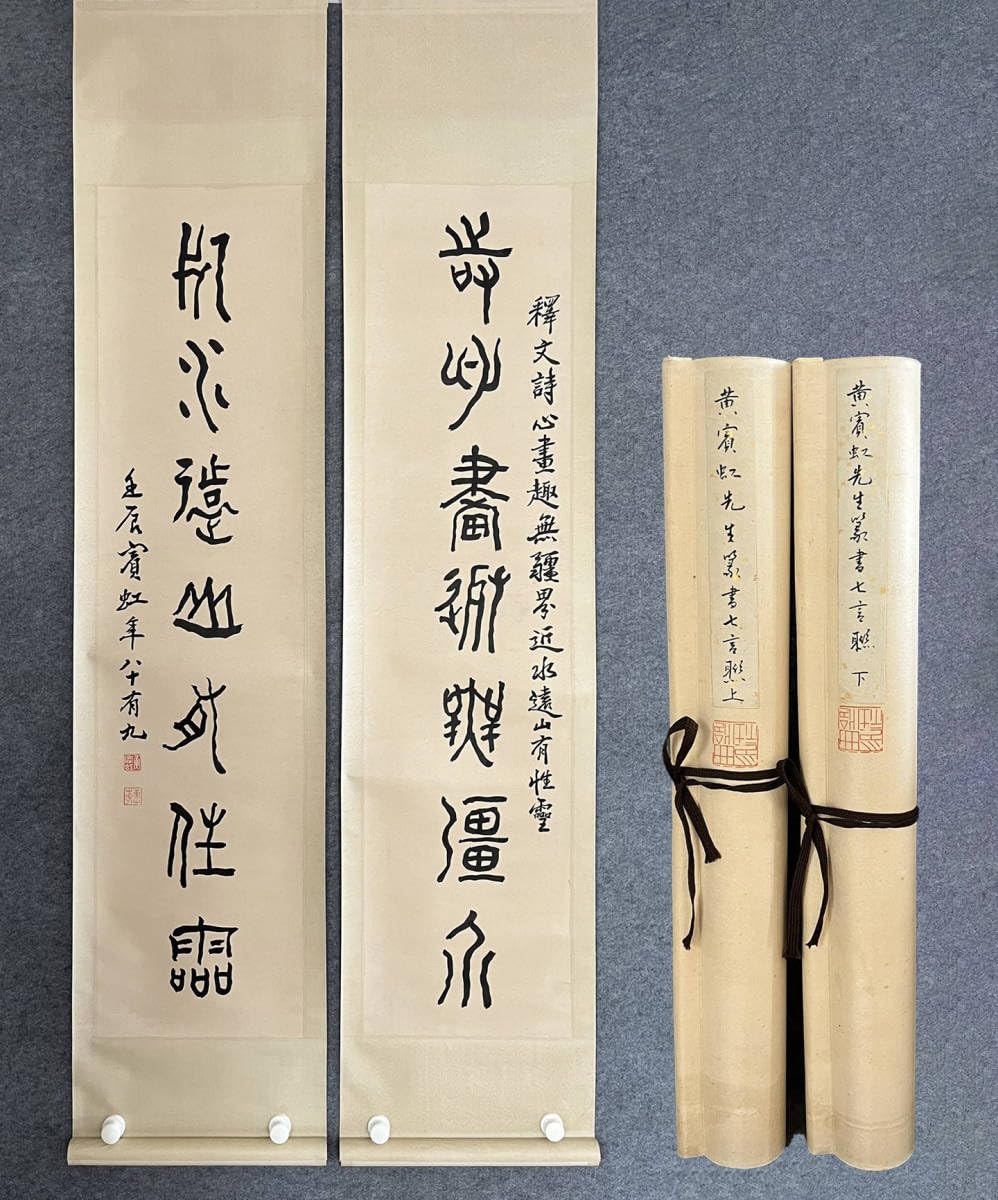 詩心畫趣無疆界
釋文詩心畫趣無疆界近水遠山有性靈
近水遠山有性靈
壬辰賓虹年八十有九
黄賓虹先生篆書七言聯上
黄賓虹先生篆書七言聯 下